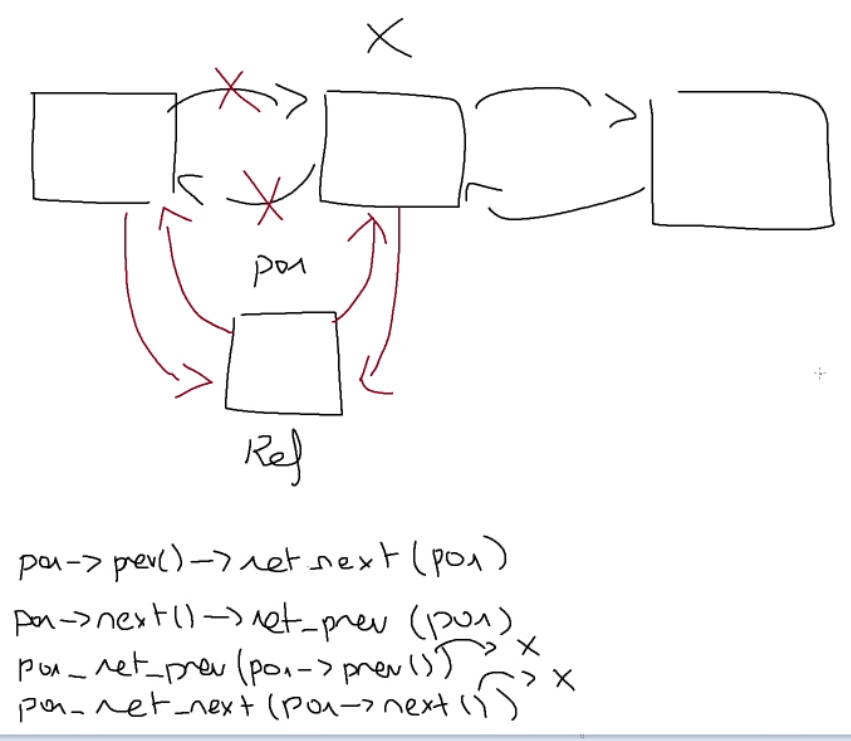 X
pos
Ref
pos->prev()->set_next(pos)
pos->next()->set_prev(pos)
pos_set_prev(pos->prev()) X
pos_set_next(pos->next()) X